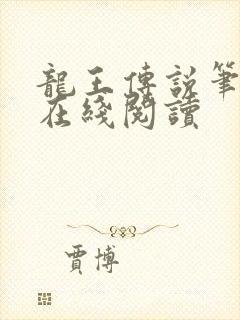 龍王傳説筆
在綫閱讀
賈博